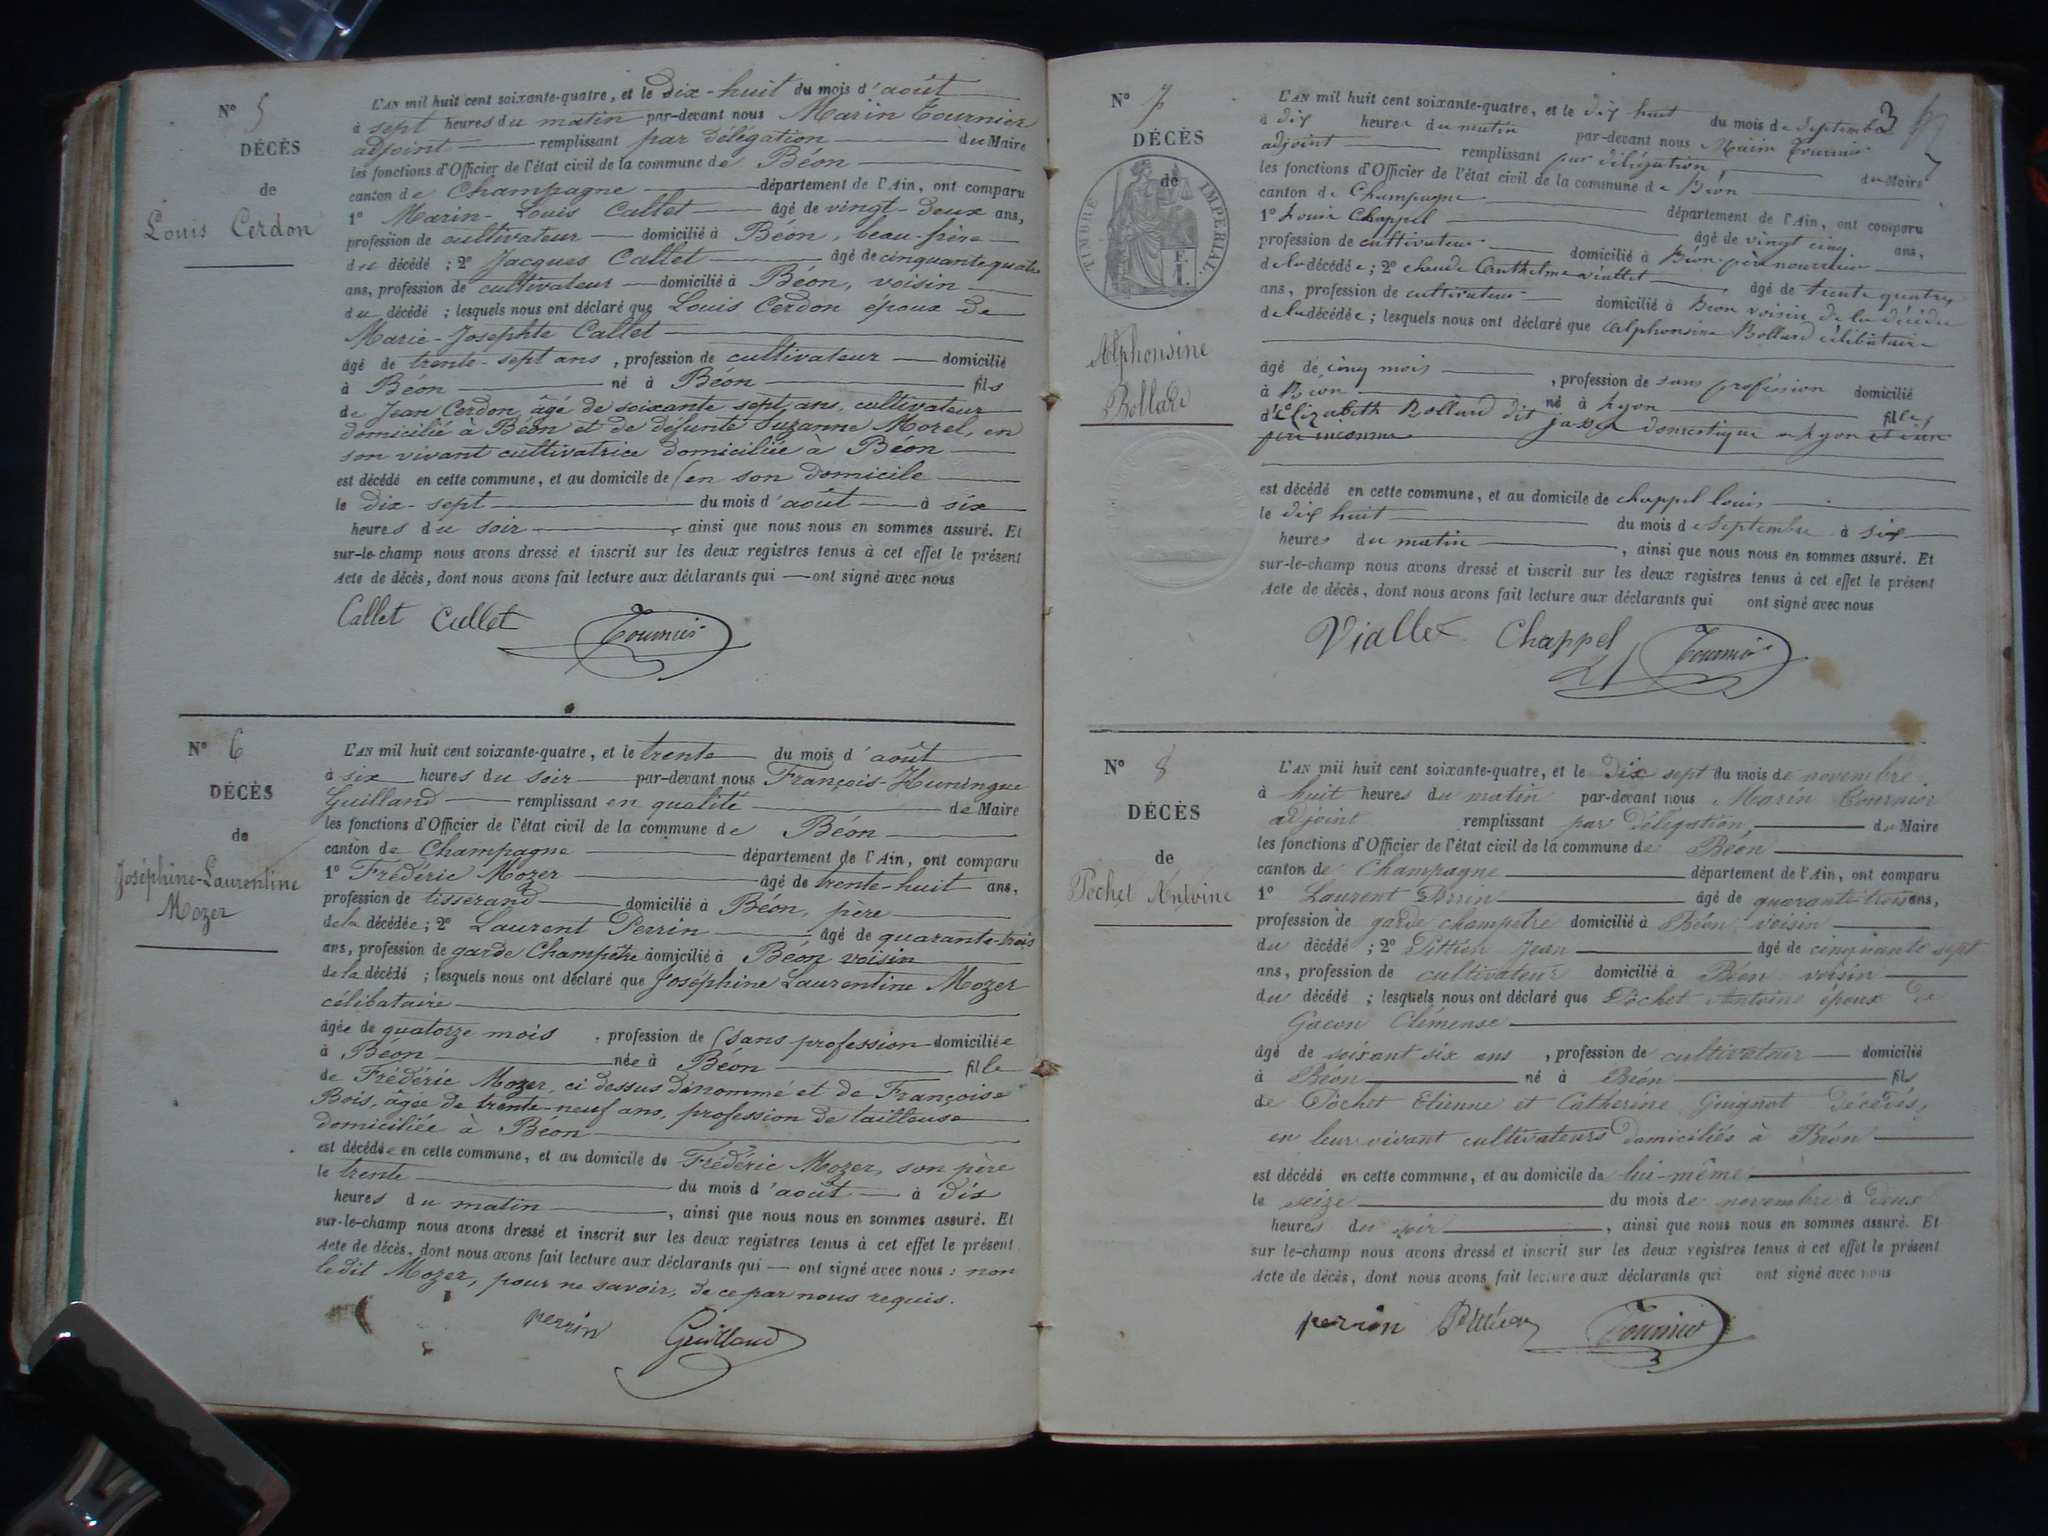 N° 5
DÉCÈS
de
Louis Cerdon
L'AN mil huit cent soixante-quatre, et le dix-huit du mois d'août
à sept heures du matin par-devant nous Marin Tournier
adjoint remplissant par délégation du Maire
les fonctions d'Officier de l'état civil de la commune de Béon
canton de Champagne département de l'Ain, ont comparu
1° Marin-Louis Callet âgé de vingt-deux ans,
profession de cultivateur domicilié à Béon, beau-frère
du décédé ; 2° Jacques Callet âgé de cinquante quatre
ans, profession de cultivateur domicilié à Béon, voisin
du décédé ; lesquels nous ont déclaré que Louis Cerdon époux de
Marie-Josephte Callet
âgé de trente-sept ans, profession de cultivateur domicilié
à Béon né à Béon fils
de Jean Cerdon, âgé de soixante sept ans, cultivateur
domicilié à Béon et de defunte Suzanne Morel, en
son vivant cultivatrice domiciliée à Béon
est décédé en cette commune, et au domicile de (en son domicile
le dix-sept du mois d'août à six
heures du soir, ainsi que nous nous en sommes assuré. Et
sur-le-champ nous avons dressé et inscrit sur les deux registres tenus à cet effet le présent
Acte de décès, dont nous avons fait lecture aux déclarants qui ont signé avec nous
Callet Callet Tournier
N° 6
DÉCÈS
de
Joséphine-Laurentine
Mozer
L'AN mil huit cent soixante-quatre, et le trente du mois d'août
à six heures du soir par-devant nous François-Huningue
Guilland remplissant en qualité de Maire
les fonctions d'Officier de l'état civil de la commune de Béon
canton de Champagne département de l'Ain, ont comparu
1° Frédéric Mozer âgé de trente-huit ans,
profession de tisserand domicilié à Béon, père
de la décédée ; 2° Laurent Perrin âgé de quarante-trois
ans, profession de garde Champêtre domicilié à Béon voisin
de la décédé ; lesquels nous ont déclaré que Joséphine Laurentine Mozer
célibataire
âgée de quatorze mois, profession de (sans profession domiciliée
à Béon née à Béon fille
de Frédéric Mozer, ci dessus dénommé et de Françoise
Bois, âgée de trente-neuf ans, profession de tailleuse
domiciliée à Béon
est décédée en cette commune, et au domicile de Frédéric Mozer, son père
le trente du mois d'août à dix
heures du matin, ainsi que nous nous en sommes assuré. Et
sur-le-champ nous avons dressé et inscrit sur les deux registres tenus à cet effet le présent
Acte de décès, dont nous avons fait lecture aux déclarants qui ont signé avec nous : non
ledit Mozer, pour ne savoir, de ce par nous requis.
perrin Guilland
N° 7
DÉCÈS
de
TIMBRE IMPÉRIAL
Alphonsine
Bollard
3
7
L'AN mil huit cent soixante-quatre, et le dix huit du mois de Septembre
à dix heures du matin par-devant nous Marin Tournier
adjoint remplissant par délégation du Maire
les fonctions d'Officier de l'état civil de la commune de Béon
canton de Champagne département de l'Ain, ont comparu
1° Louis Chappel âgé de vingt cinq ans,
profession de cultivateur domicilié à Béon père nourricier
de la décédée ; 2° claude Anthelme viallet âgé de trente quatre
ans, profession de cultivateur domicilié à Béon voisin de la décédée
de la décédée ; lesquels nous ont déclaré que Alphonsine Bollard célibataire
âgé de cinq mois, profession de sans profession domicilié
à Béon né à Lyon fille
d'Elizabeth Bollard dit domestique a Lyon et d'un
père inconnu
est décédé en cette commune, et au domicile de chappel louis
le dix huit du mois de Septembre à six
heures du matin, ainsi que nous nous en sommes assuré. Et
sur-le-champ nous avons dressé et inscrit sur les deux registres tenus à cet effet le présent
Acte de décès, dont nous avons fait lecture aux déclarants qui ont signé avec nous
Viallet Chappel Tournier
N° 8
DÉCÈS
de
Pochet Antoine
L'AN mil huit cent soixante-quatre, et le Dix sept du mois de novembre
à huit heures du matin par-devant nous Marin Tournier
adjoint remplissant par délégation, du Maire
les fonctions d'Officier de l'état civil de la commune de Béon
canton de Champagne département de l'Ain, ont comparu
1° Laurent Perrin âgé de quarante-trois ans,
profession de garde champetre domicilié à Béon, voisin
du décédé ; 2° Jean âgé de cinquante sept
ans, profession de cultivateur domicilié à Béon voisin
du décédé ; lesquels nous ont déclaré que Pochet Antoine époux de
Gacon Clémense
âgé de soixant six ans, profession de cultivateur domicilié
à Béon né à Béon fils
de Pochet Etienne et Catherine Guignot Décédés,
en leur vivant cultivateurs domiciliés à Béon
est décédé en cette commune, et au domicile de lui-même
le seize du mois de novembre à deux
heures du soir, ainsi que nous nous en sommes assuré. Et
sur le-champ nous avons dressé et inscrit sur les deux registres tenus à cet effet le présent
Acte de décès, dont nous avons fait lecture aux déclarants qui ont signé avec nous
perrin Tournier